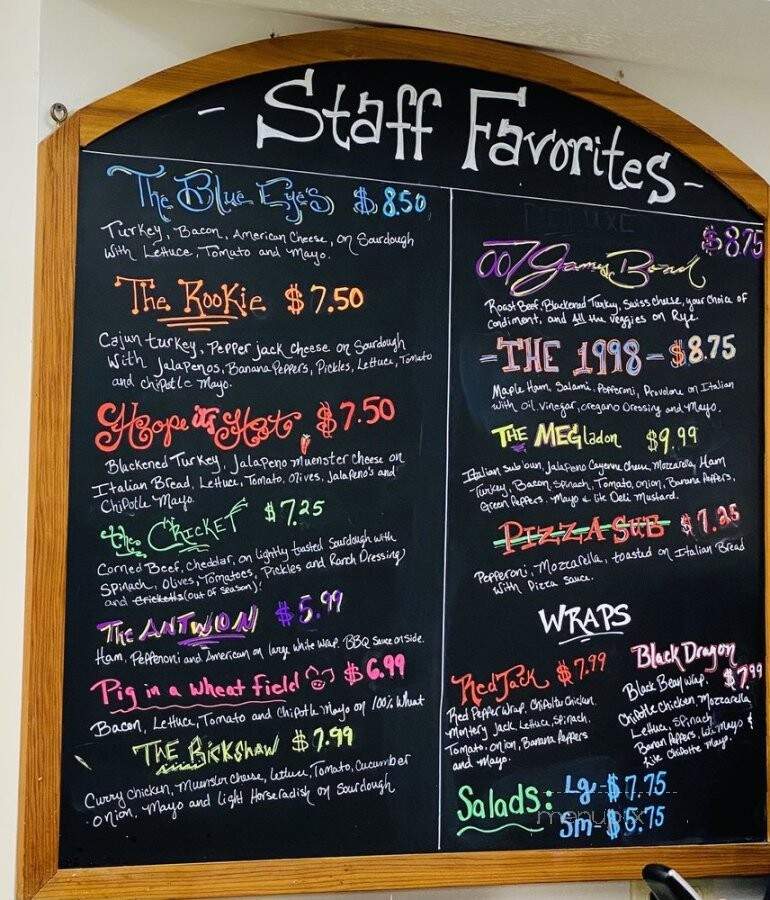 - Staff Favorites -
The Blue Eye's $8.50
Turkey, Bacon, American Cheese, on Sourdough
with Lettuce, Tomato and Mayo.
The Rookie $7.50
Cajun turkey, Pepper jack cheese on Sourdough
with Jalapenos, Banana Peppers, Pickles, Lettuce, Tomato
and chipotle Mayo.
Hope its Hot $7.50
Blackened Turkey, Jalapeno muenster cheese on
Italian Bread, Lettuce, Tomato, olives, Jalapeno's and
Chipotle Mayo.
the CRICKET $7.25
Corned Beef, cheddar, on lightly toasted Sourdough with
Spinach, olives, Tomatoes, Pickles and Ranch Dressing
and Cricketts (out of season)!
The ANTWON $5.99
Ham, Pepperoni and American on large white wrap. BBQ Sauce on side.
Pig in a wheat field $6.99
Bacon, Lettuce, Tomato and Chipotle Mayo on 100% Wheat
THE RICKSHAW $7.99
Curry chicken, Muenster cheese, lettuce, Tomato, Cucumber
onion, Mayo and light Horseradish on Sourdough
DELUXE
$8.75
007 James Bond
Roast Beef, Blackened Turkey, Swiss cheese, your choice of
condiment, and All the veggies on Rye.
- THE 1998 - $8.75
Maple Ham, Salami, Pepperoni, Provolone on Italian
with oil, vinegar, oregano Dressing and Mayo.
THE MEGladon $9.99
Italian sub bun, Jalapeno Cayenne cheese, Mozzarella, Ham
Turkey, Bacon, Spinach, Tomato, onion, Banana Peppers,
Green Peppers, Mayo & lite Deli Mustard.
PIZZA SUB $7.25
Pepperoni, Mozzarella, toasted on Italian Bread
with Pizza sauce.
WRAPS
Red Jack $7.99
Red Pepper Wrap, Chipotle Chicken
Montery Jack, Lettuce, Spinach,
Tomato, onion, Banana Peppers
and Mayo.
Black Dragon
$7.99
Black Bean Wrap,
Chipotle Chicken, Mozzarella,
Lettuce, Spinach,
Banana Peppers, Mayo &
Lite Chipotle Mayo.
Salads: Lg - $7.75
Sm - $5.75
menupix